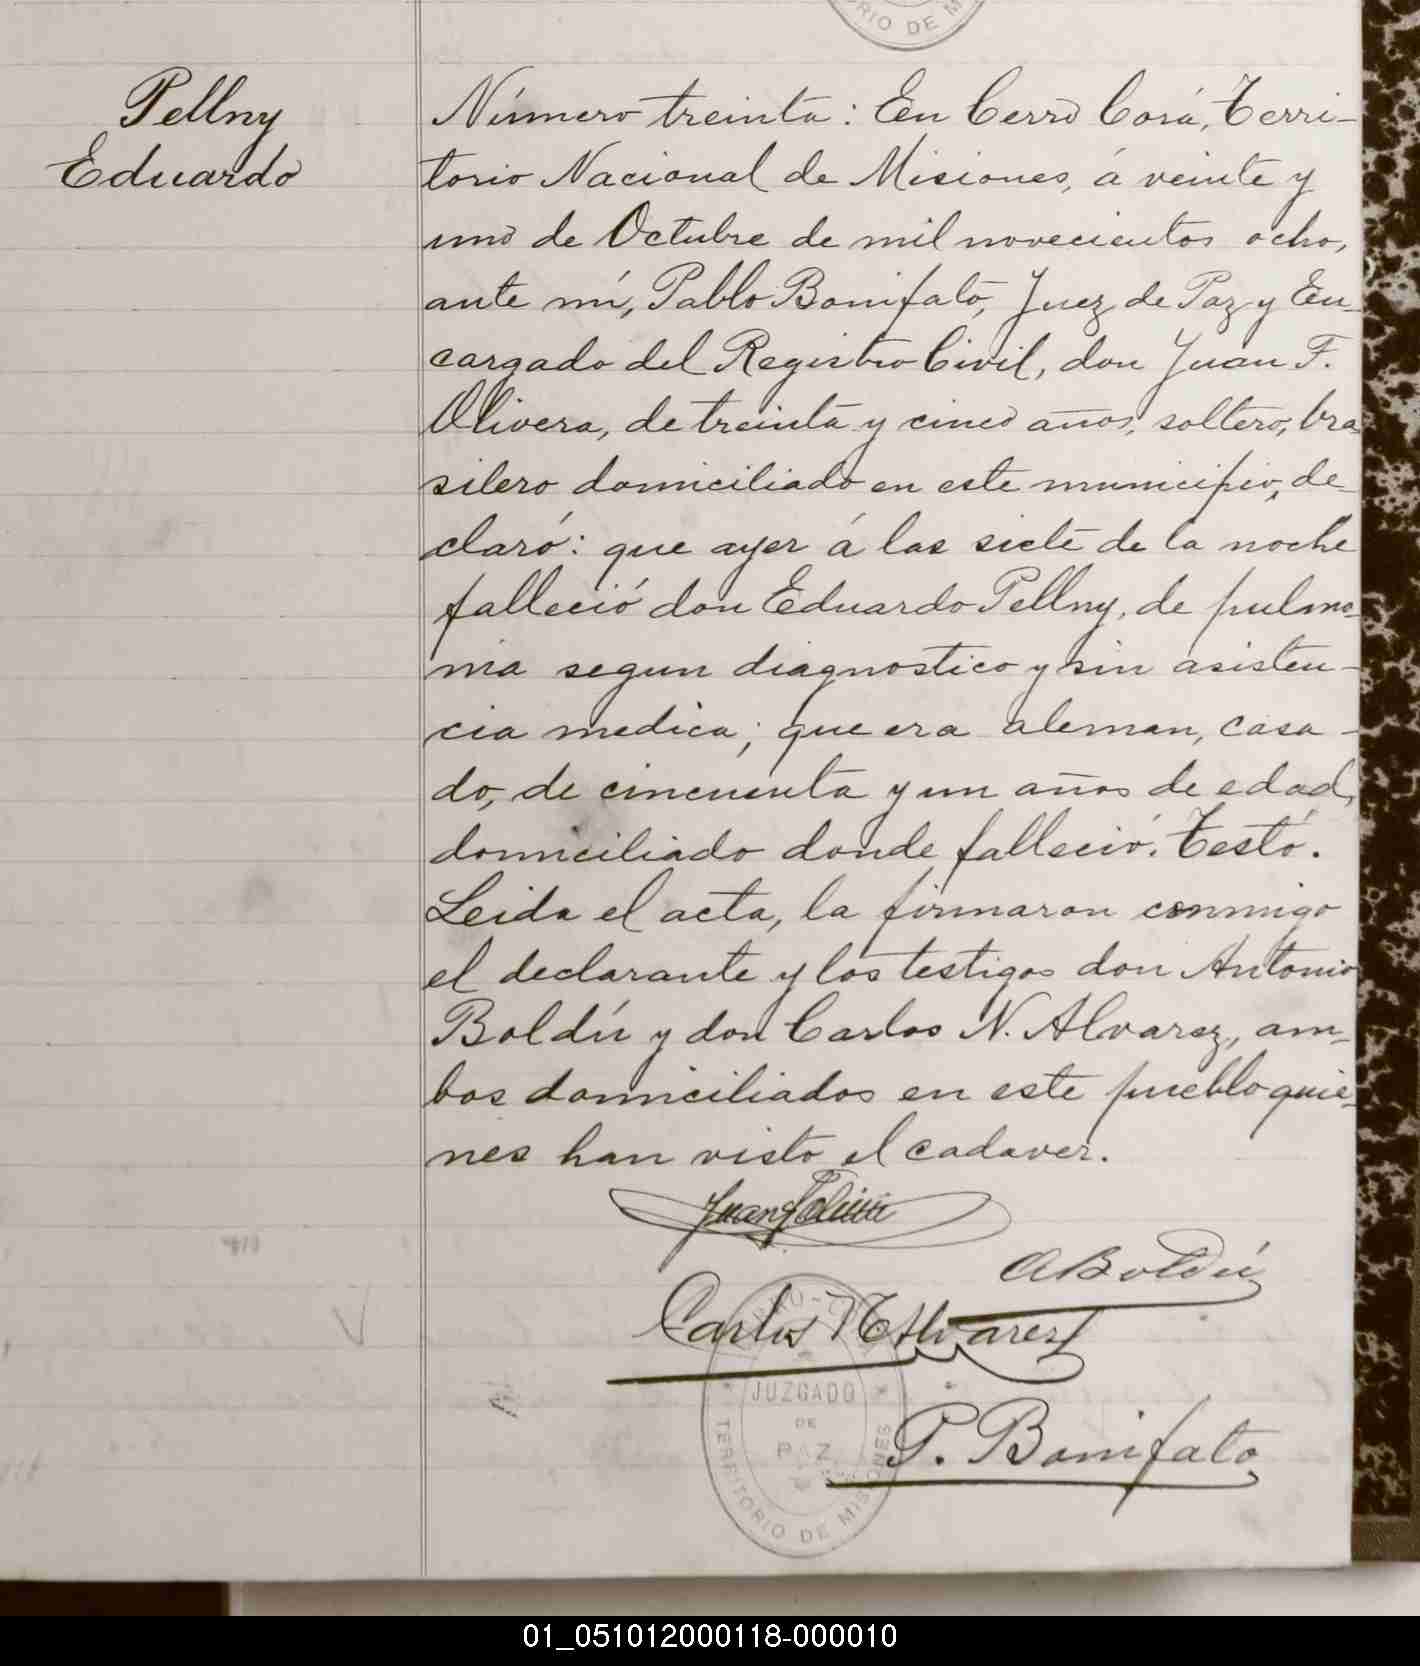 RIO DE MI
Pellny
Eduardo
Número treinta: En Cerro Corá, Terri-
torio Nacional de Misiones, á veinte y
uno de Octubre de mil novecientos ocho,
ante mí, Pablo Bonifato, Juez de Paz y En-
cargado del Registro Civil, don Juan F.
Olivera, de treinta y cinco años, soltero, bra
silero domiciliado en este municipio, de-
claró: que ayer á las siete de la noche
falleció don Eduardo Pellny, de pulmo-
nia segun diagnostico y sin asisten-
cia medica; que era aleman, casa-
do, de cincuenta y un años de edad,
domiciliado donde falleció. Testó.
Leida el acta, la firmaron conmigo
el declarante y los testigos don Antonio
Boldú y don Carlos N. Alvarez, am-
bos domiciliados en este pueblo quie-
nes han visto el cadaver.
Juan
A Boldú
Carlos N Alvarez
JUZGADO
DE
PAZ
TERRITORIO DE MISIONES
P. Bonifato
01_051012000118-000010